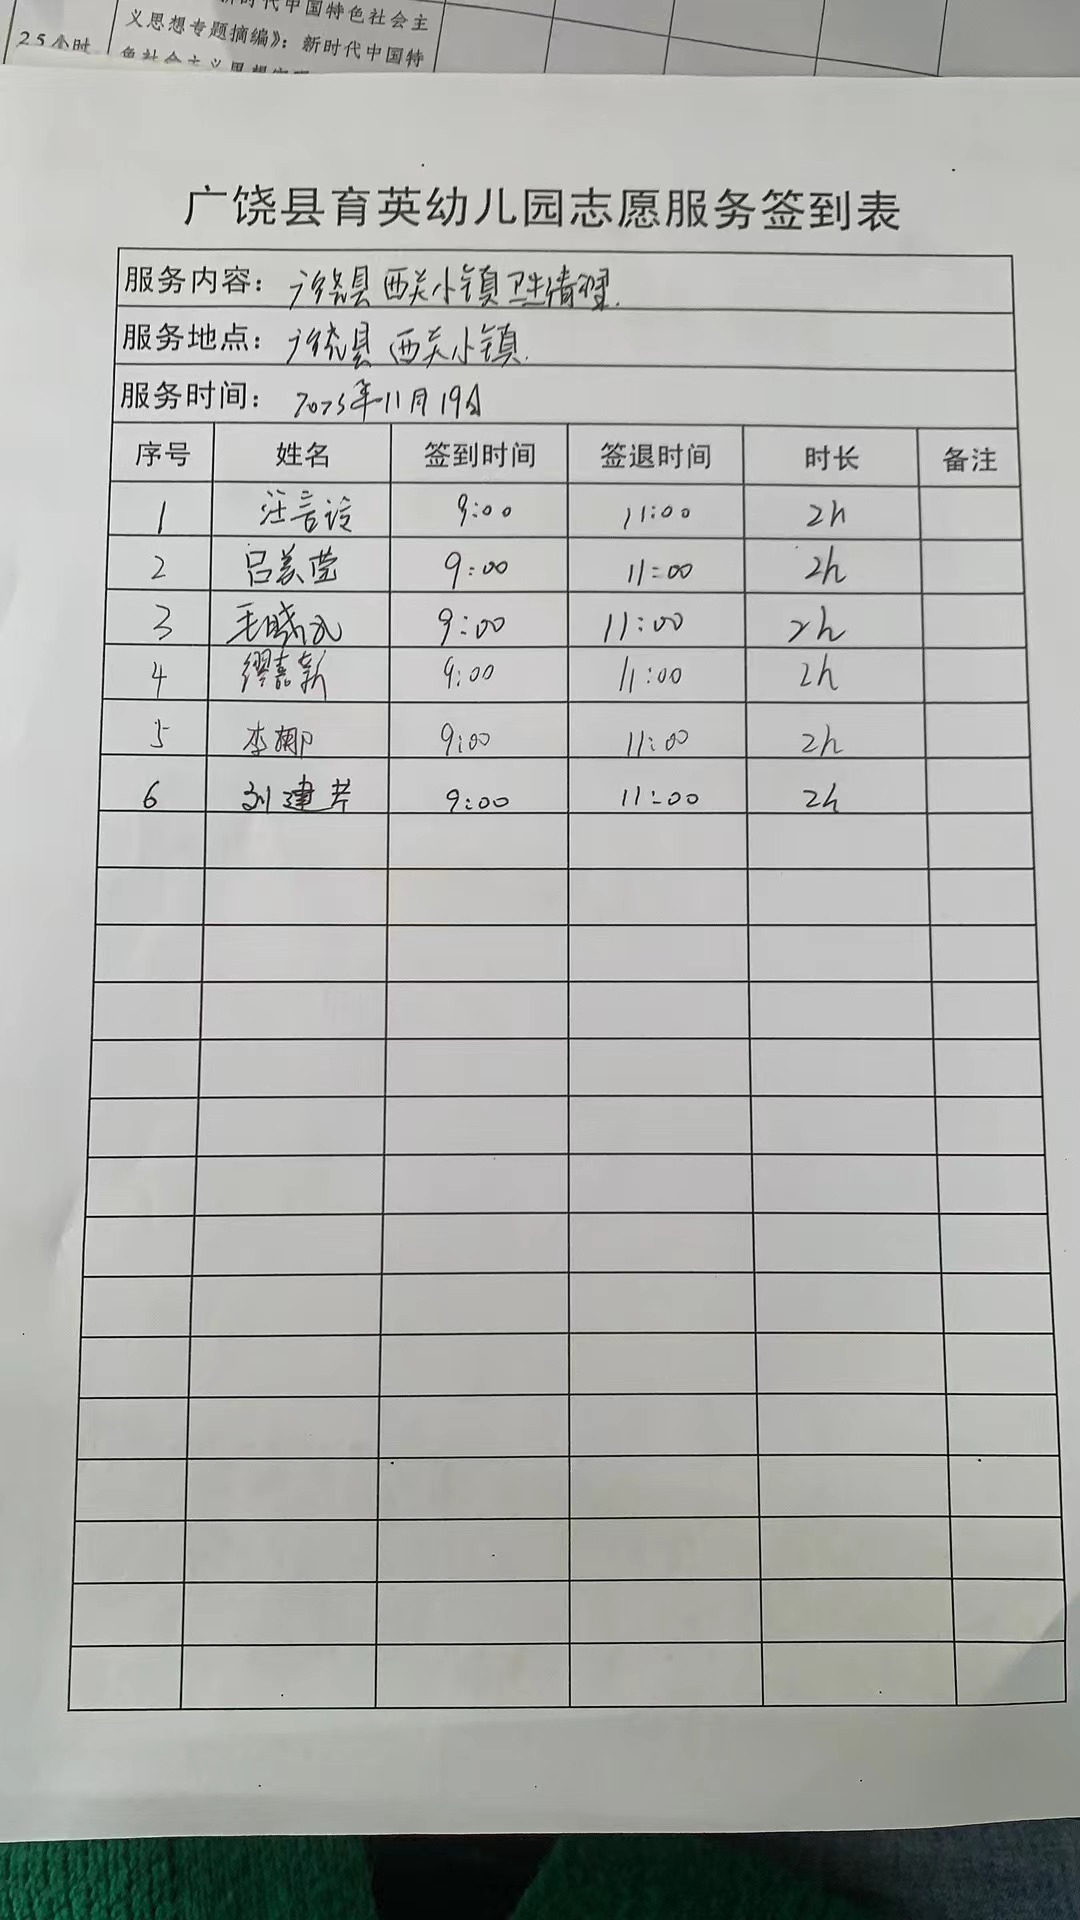 新时代中国特色社会主
义思想专题摘编》：新时代中国特
25小时
色社会主义思想
广饶县育英幼儿园志愿服务签到表
服务内容：广饶县西关小镇卫生清理.
服务地点：广饶县西关小镇.
服务时间：2025年11月19日
序号 姓名 签到时间 签退时间 时长 备注
1 9:00 11:00 2h
2 吕美莹 9:00 11:00 2h
3 9:00 11:00 2h
4 缪嘉新 9:00 11:00 2h
5 李娜 9:00 11:00 2h
6 刘建芹 9:00 11:00 2h